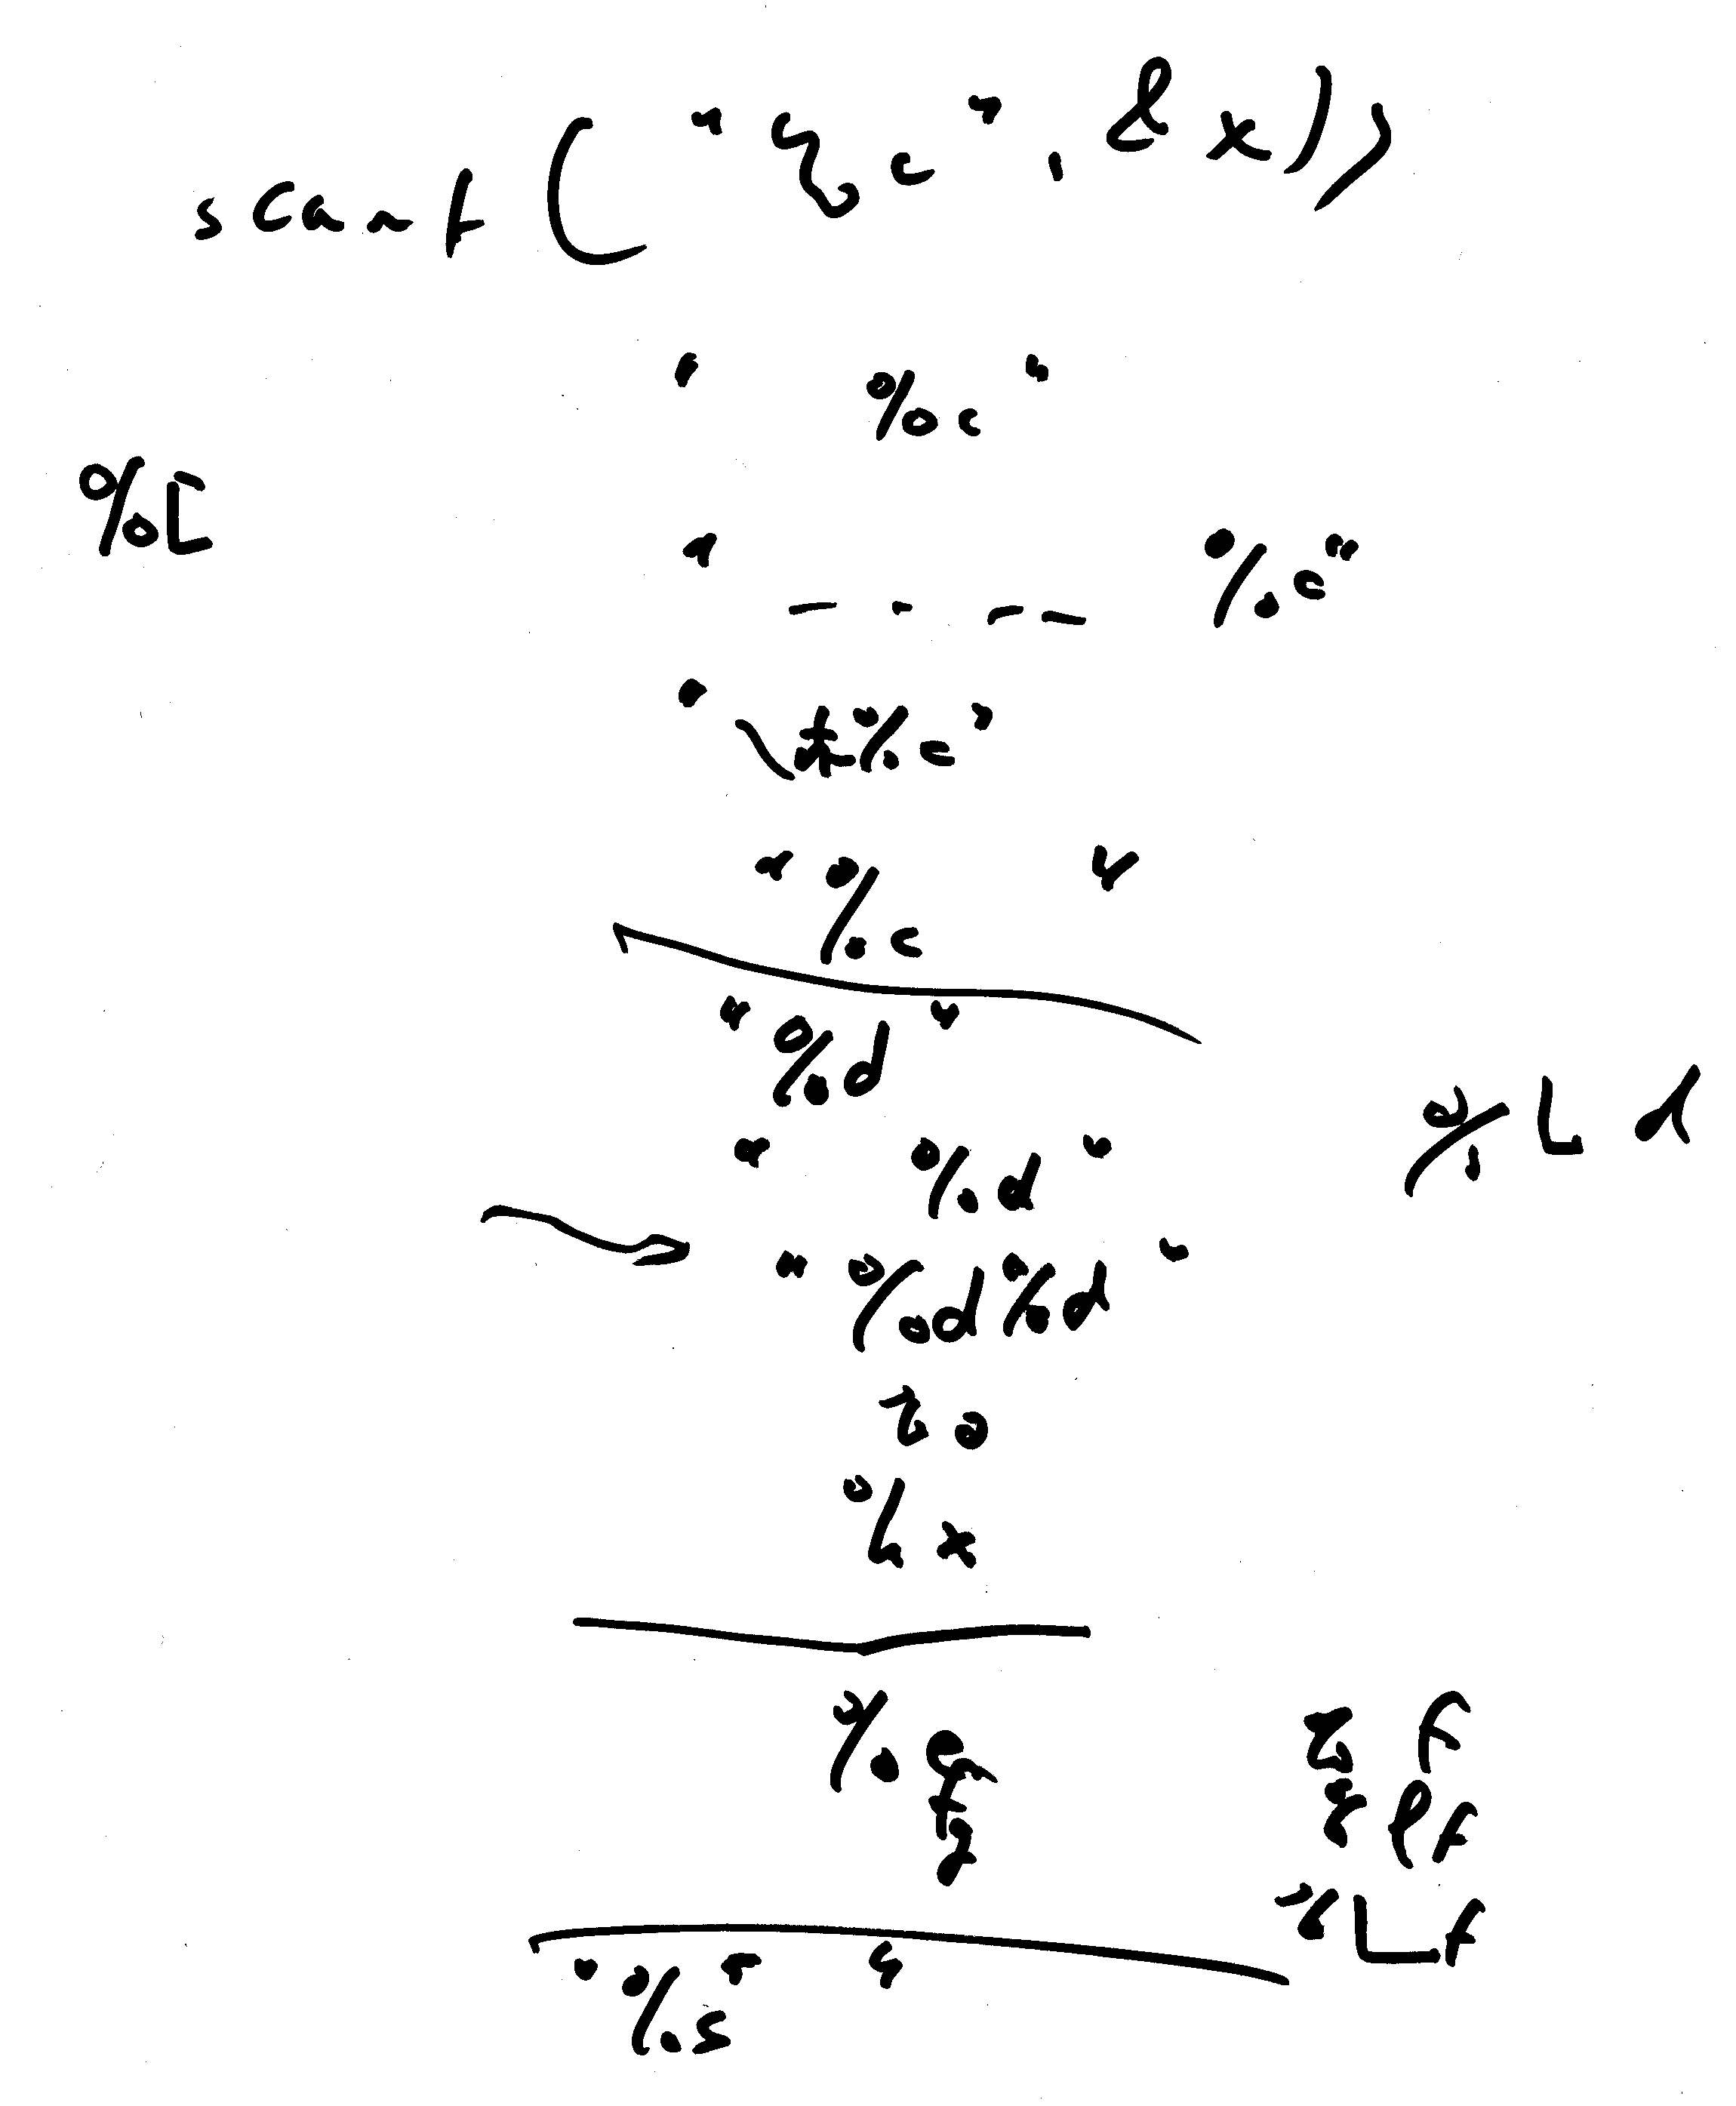 scanf("%c", &x))
" %c"
%[
" - - - - %c"
"\t%c"
"%c "
"%d"
%Ld
" %d"
"%d%d"
%o
%x
%e %f
f %lf
g %Lf
"%s"